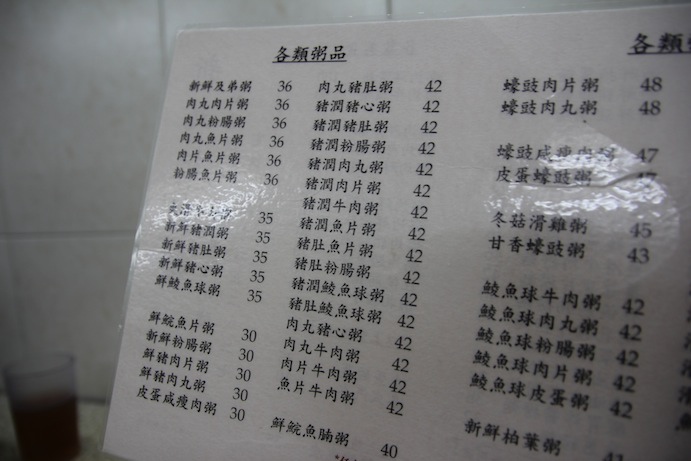 各類粥品
新鮮及弟粥 36
肉丸肉片粥 36
肉丸粉腸粥 36
肉丸魚片粥 36
肉片魚片粥 36
粉腸魚片粥 36
35
新鮮豬潤粥 35
新鮮豬肚粥 35
新鮮豬心粥 35
鮮鯪魚球粥 35
鮮鯇魚片粥 30
新鮮粉腸粥 30
鮮豬肉片粥 30
鮮豬肉丸粥 30
皮蛋咸瘦肉粥 30
肉丸豬肚粥 42
豬潤豬心粥 42
豬潤豬肚粥 42
豬潤粉腸粥 42
豬潤肉丸粥 42
豬潤肉片粥 42
豬潤牛肉粥 42
豬潤魚片粥 42
豬肚魚片粥 42
豬肚粉腸粥 42
豬潤鯪魚球粥 42
豬肚鯪魚球粥 42
肉丸豬心粥 42
肉丸牛肉粥 42
肉片牛肉粥 42
魚片牛肉粥 42
鮮鯇魚腩粥 40
各類
蠔豉肉片粥 48
蠔豉肉丸粥 48
蠔豉咸瘦肉粥 47
皮蛋蠔豉粥 47
冬菇滑雞粥 45
甘香蠔豉粥 43
鯪魚球牛肉粥 42
鯪魚球肉丸粥 42
鯪魚球粉腸粥 42
鯪魚球肉片粥 42
鯪魚球皮蛋粥 42
新鮮柏葉粥